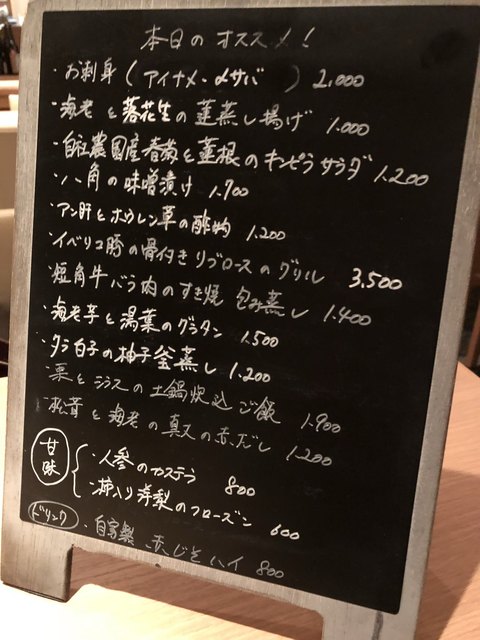 本日のオススメ!
・お刺身(アイナメ・〆サバ ) 2,000
・海老と落花生の蓮蒸し揚げ 1.000
・自社農園産春菊と蓮根のキンピラサラダ 1.200
・八角の味噌漬け 1.700
・アン肝とホウレン草の酢物 1.200
・イベリコ豚の骨付きリブロースのグリル 3.500
・短角牛バラ肉のすき焼 包み蒸し 1.400
・海老芋と湯葉のグラタン 1.500
・タラ白子の柚子釜蒸し 1.200
・栗とシラスの土鍋炊込ご飯 1.900
・松茸と海老の真丈の赤だし 1.200
甘味
・人参のカステラ 800
・柿入り洋梨のフローズン 600
ドリンク ・自家製 赤じそハイ 800